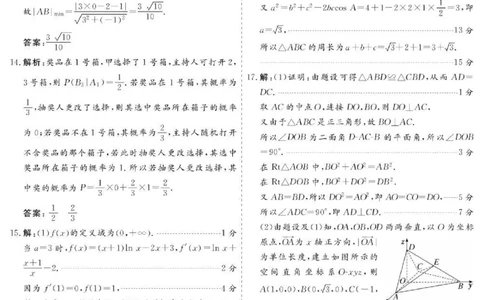 故|AB|min=|3×0-2-1|/√3²+(-1)²=3√10/10.
答案:3√10/10
14.解析:若奖品在1号箱,甲选择了1号箱,主持人可打开2,
3号箱,则P(B₂|A₁)=1/2.若奖品在1号箱,其概率为
1/3,抽奖人更改了选择,则其选中奖品所在箱子的概率
为0;若奖品不在1号箱,其概率为2/3,主持人随机打开
不含奖品的那个箱子,若此时抽奖人更改选择,其选中
奖品所在箱子的概率为1.所以若抽奖人更改选择,其
中奖的概率为P=1/3×0+2/3×1=2/3.
答案:1/2 2/3
15.解:(1)f(x)的定义域为(0,+∞). 1分
当a=3时,f(x)=(x+1)ln x-2x+3,f′(x)=ln x+
x+1/x-2. 2分
因为f′(1)=0,f(1)=1, 4分
又a²=b²+c²-2bccos A=4+1-2×2×1×1/2=3,即
a=√3, 13分
所以△ABC的周长为a+b+c=√3+2+1=3+√3.
15分
17.解:(1)证明:由题设可得△ABD≌△CBD,从而AD=
DC. 1分
取AC的中点O,连接DO,BO,则DO⊥AC,
又由于△ABC是正三角形,故BO⊥AC.
所以∠DOB为二面角D-AC-B的平面角,所以∠DOB
=90°. 3分
在Rt△AOB中,BO²+AO²=AB².
在Rt△DOB中,BO²+DO²=DB².
又AB=BD,所以DO²=AO²,即AO=CO=DO. 5分
所以∠ADC=90°,即AD⊥CD. 7分
(2)由题设及(1)知,OA,OB,OD两两垂直,以O为坐标
原点,OA为x轴正方向,|OA|
为单位长度,建立如图所示的
空间直角坐标系O-xyz,则
A(1,0,0),B(0,√3,0),C(-1,
z
D
E
C
O
B y
A